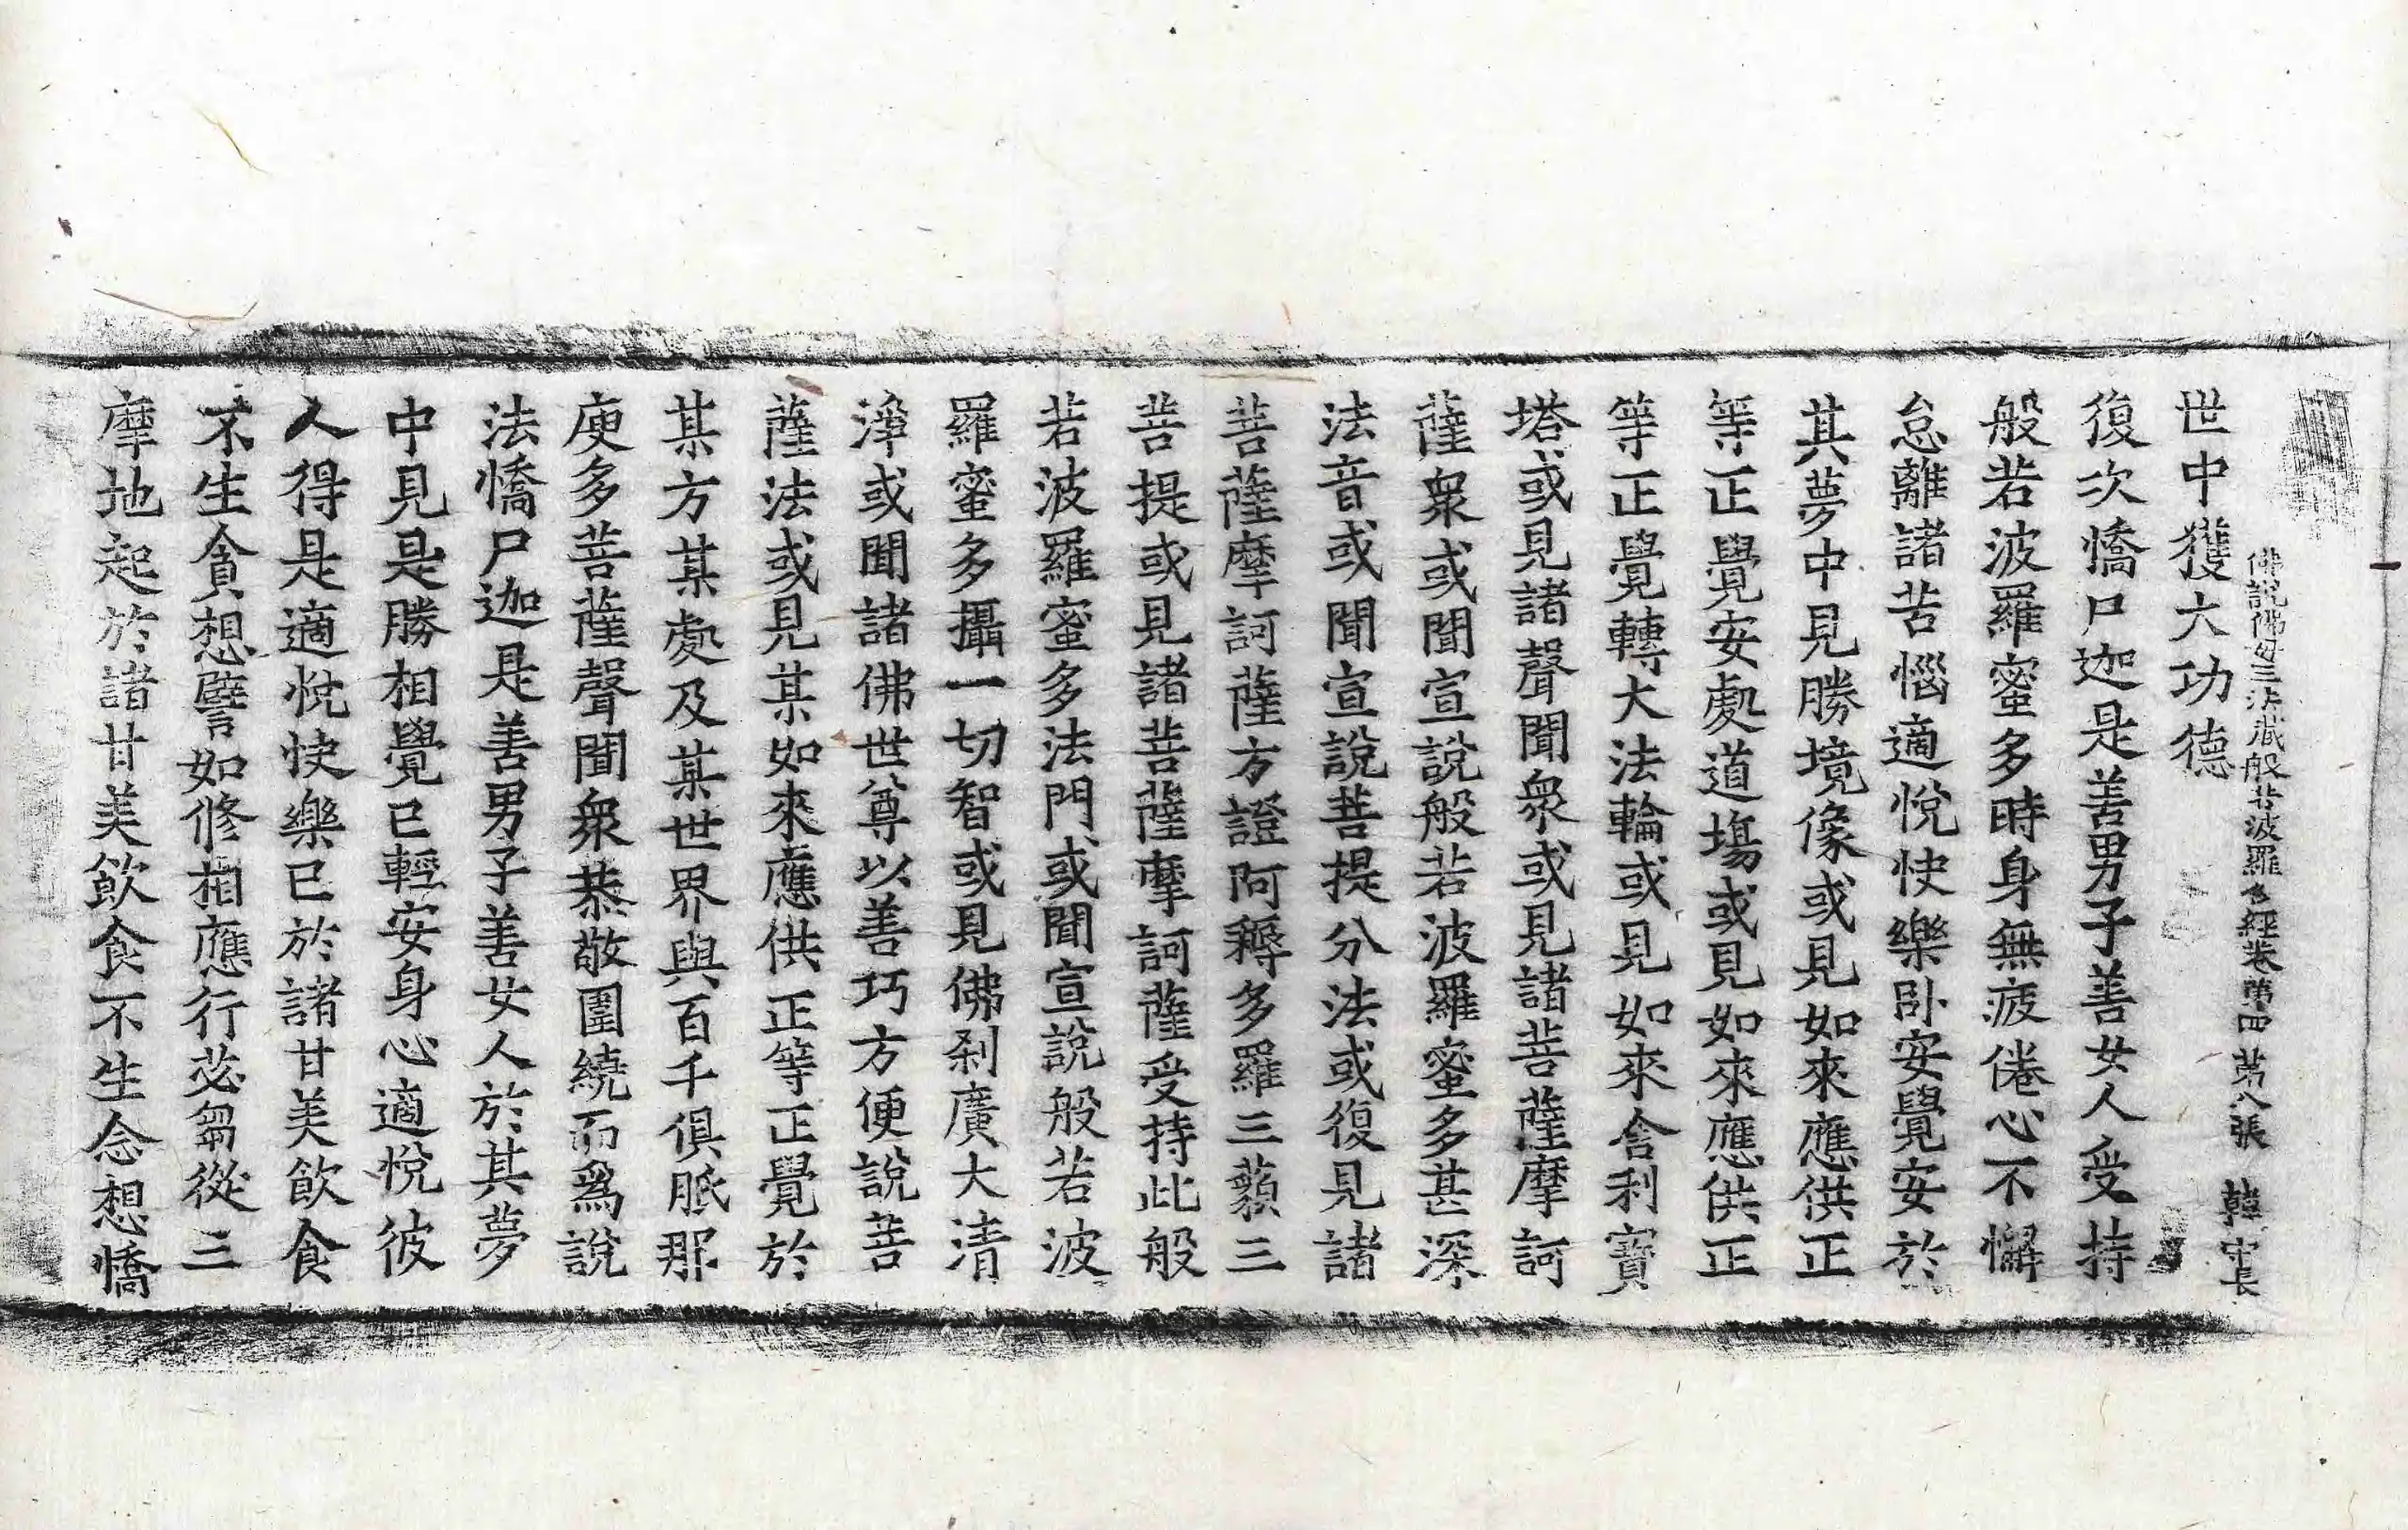 佛說佛母三法藏般若波羅多經卷第四 第八張 韓守長
世中獲大功德
復次憍尸迦是善男子善女人受持
般若波羅蜜多時身無疲倦心不懈
怠離諸苦惱適悅快樂卧安覺安於
其夢中見勝境像或見如來應供正
等正覺安處道場或見如來應供正
等正覺轉大法輪或見如來舍利寶
塔或見諸聲聞衆或見諸菩薩摩訶
薩衆或聞宣說般若波羅蜜多甚深
法音或聞宣說菩提分法或復見諸
菩薩摩訶薩方證阿耨多羅三藐三
菩提或見諸菩薩摩訶薩受持此般
若波羅蜜多法門或聞宣說般若波
羅蜜多攝一切智或見佛刹廣大清
淨或聞諸佛世尊以善巧方便說菩
薩法或見某如來應供正等正覺於
某方某處及某世界與百千俱胝那
庾多菩薩聲聞衆恭敬圍繞而爲說
法憍尸迦是善男子善女人於其夢
中見是勝相覺已輕安身心適悅彼
人得是適悅快樂已於諸甘美飲食
不生貪想譬如修相應行苾芻從三
摩地起於諸甘美飲食不生念想憍